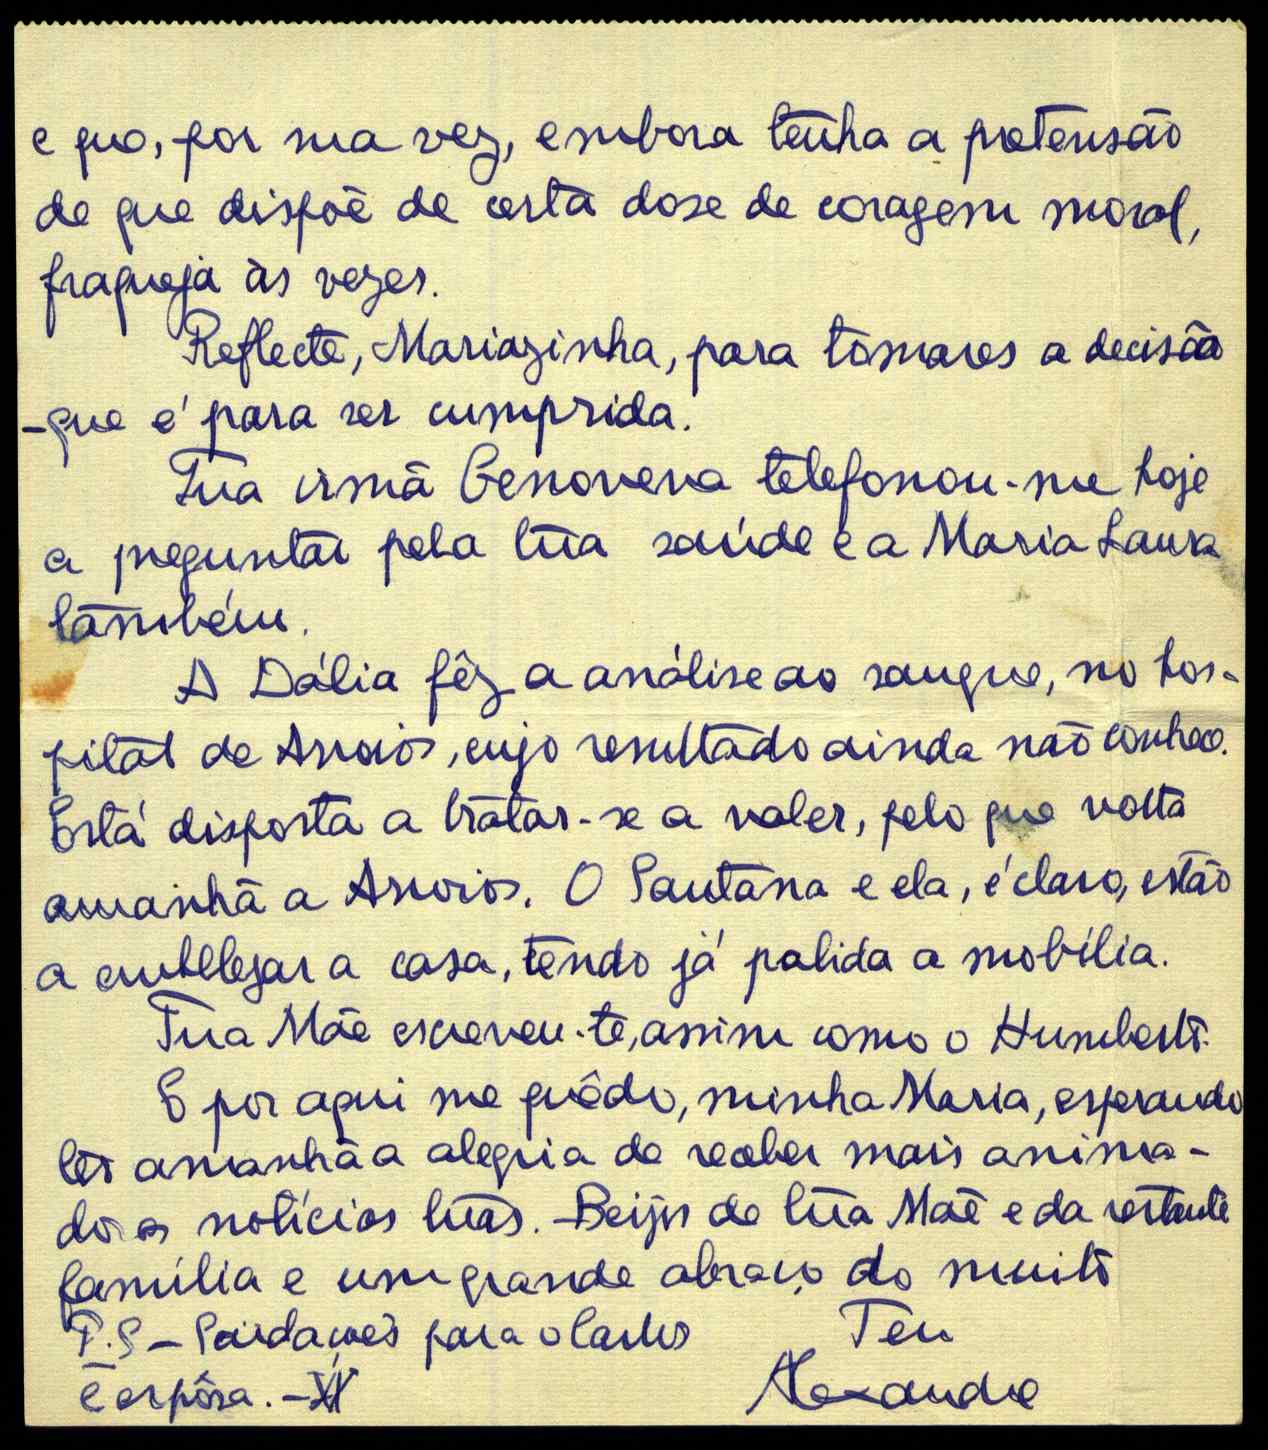 e que, por sua vez, embora tenha a pretensão
de que dispõe de certa dose de coragem moral,
fraqueja às vezes.
Reflecte, Mariazinha, para tomares a decisão
-que é para ser cumprida.
Tua irmã Genoveva telefonou-me hoje
a preguntar pela tua saúde e a Maria Laura
também.
A Dália fêz a análise ao sangue, no hos-
pital de Arroios, cujo resultado ainda não conheço.
Está disposta a tratar-se a valer, pelo que volta
amanhã a Arroios. O Santana e ela, é claro, estão
a embelezar a casa, tendo já polida a mobília.
Tua Mãe escreveu-te, assim como o Humberto.
E por aqui me quêdo, minha Maria, esperando
ter amanhã a alegria de receber mais anima-
doras notícias tuas. - Beijos de tua Mãe e da restante
família e um grande abraço do muito
P.S - Saüdações para o Carlos Teu
e espôsa. - Alexandre